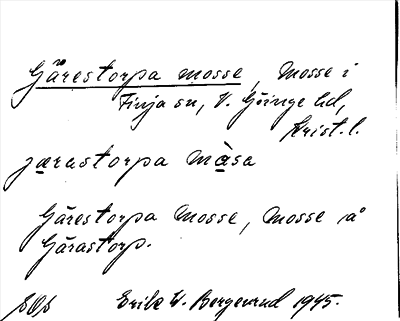 Gärestorpa mosse, Mosse i
Finja sn, V. Göinge hd,
Krist. l.
jærastorpa måsa
Gärestorpa Mosse, Mosse å
Gärastorp.
Erik W. Bergevrud 1945.